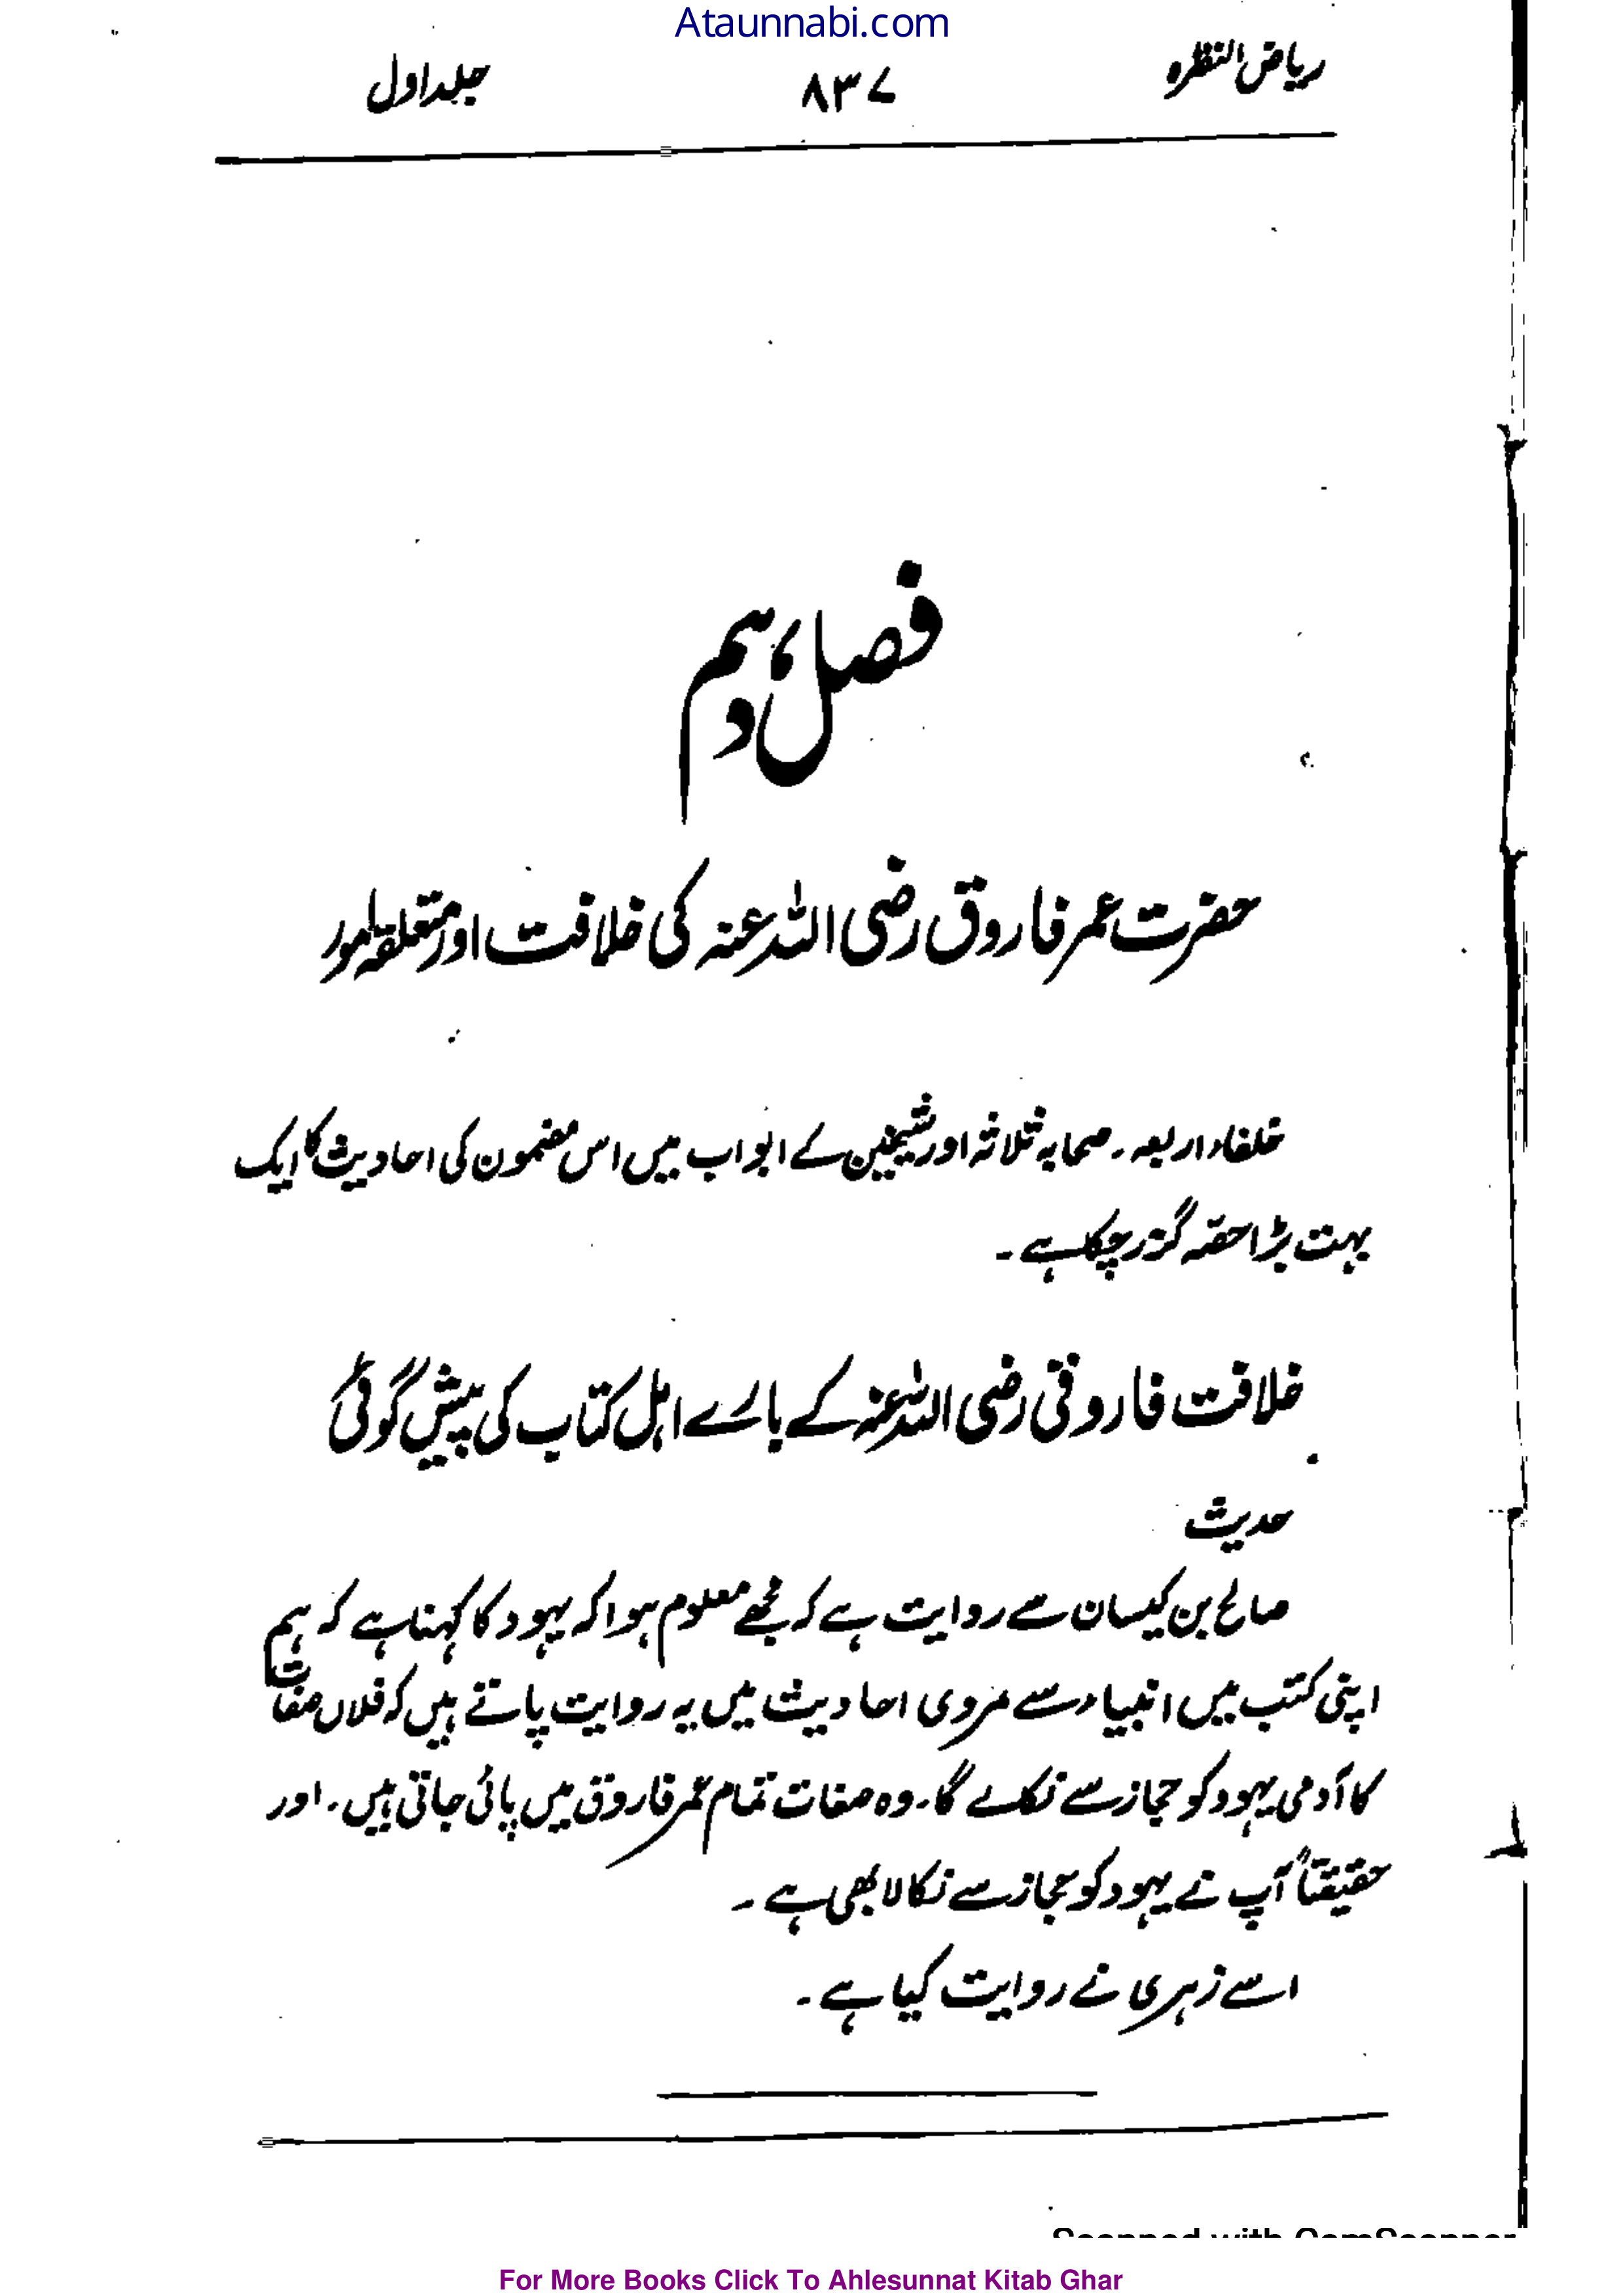 Ataunnabi.com
ریاض النضرہ
۸۳۷
جلد اول
فصل دہم
حضرت عمر فاروق رضی اللہ عنہ کی خلافت اور متعلقہ امور
خلفاء اربعہ ۔ صحابہ ثلاثہ اور شیخین کے ابواب میں اس مضمون کی احادیث کا ایک
بہت بڑا حصّہ گزر چکا ہے ۔
خلافت فاروقی رضی اللہ عنہ کے بارے اہل کتاب کی پیش گوئی
حدیث
صالح بن کیسان سے روایت ہے کہ مجھے معلوم ہوا کہ یہود کا کہنا ہے کہ ہم
اپنی کتب میں انبیاء سے مروی احادیث میں یہ روایت پاتے ہیں کہ فلاں صفات
کا آدمی یہود کو حجاز سے نکالے گا ۔ وہ صفات تمام عمر فاروق میں پائی جاتی ہیں ۔ اور
حقیقتاً آپ نے یہود کو حجاز سے نکالا بھی ہے ۔
اسے زہری نے روایت کیا ہے ۔
Scanned with CamScanner
For More Books Click To Ahlesunnat Kitab Ghar